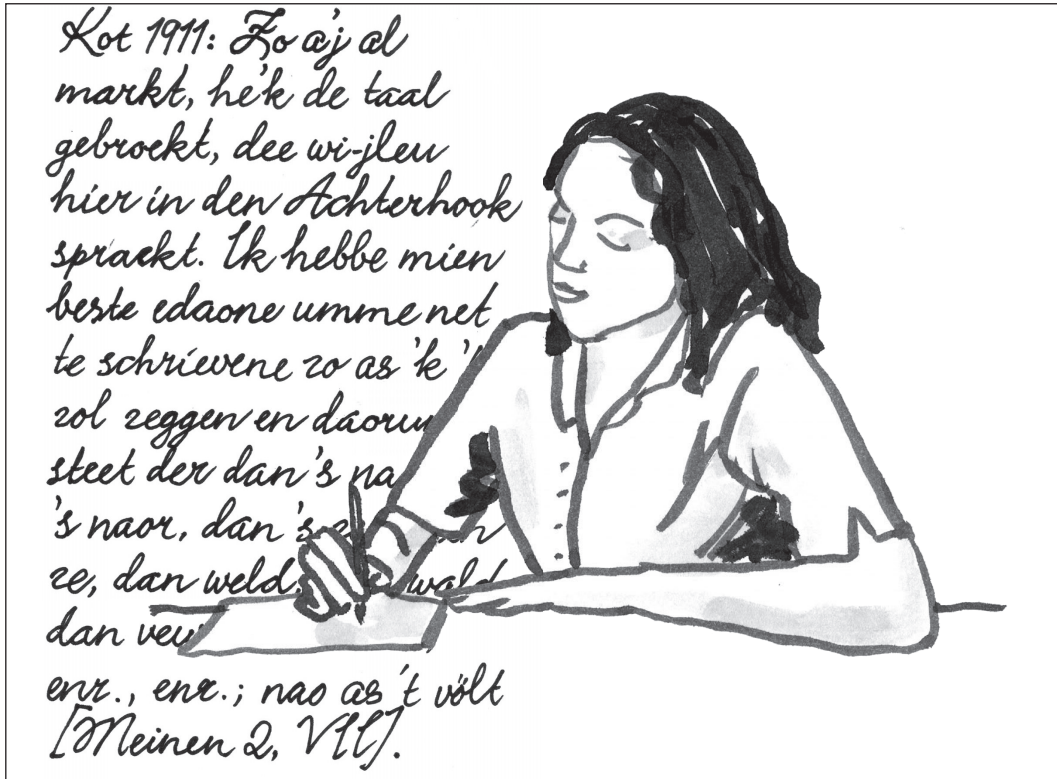 Kot 1911: Zo a'j al
markt, he'k de taal
gebroekt, dee wi-jleu
hier in den Achterhook
spraekt. Ik hebbe mien
beste edaone umme net
te schrievene zo as 'k '
zol zeggen en
steet der dan's
's naor, dan 's
ze, dan weld
dan
enz., enz.; nao as 't völt
[Meinen 2, VII].